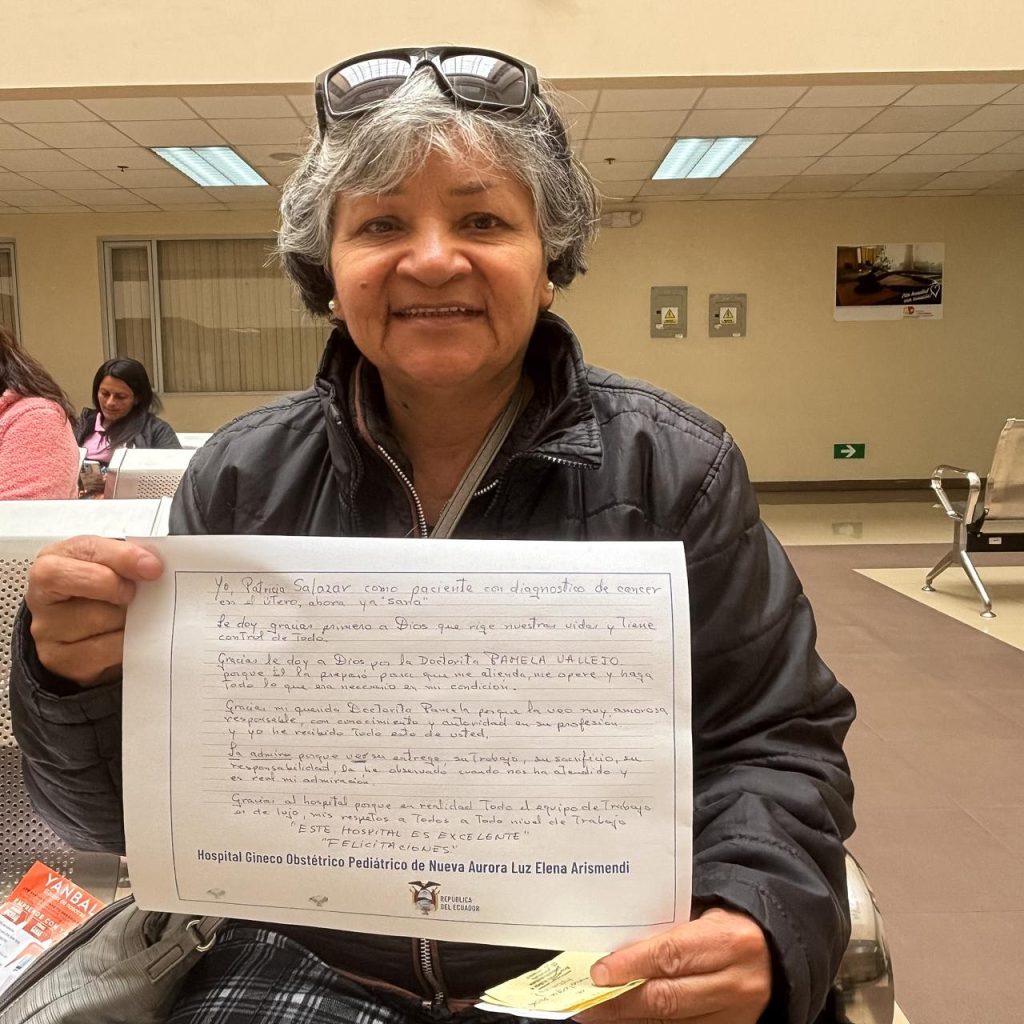 Yo, Patricia Salazar como paciente con diagnostico de cancer
en el útero, ahora ya "sana"
Le doy gracias primero a Dios que rige nuestras vidas y tiene
control de todo.
Gracias le doy a Dios por la Doctorita PAMELA VALLEJO
porque Él la preparó para que me atienda, me opere y haga
todo lo que era necesario en mi condicion.
Gracias mi querida Doctorita Pamela porque la veo muy amorosa
responsable, con conocimiento y autoridad en su profesión
y yo he recibido todo esto de usted.
La admiro porque veo su entrega, su trabajo, su sacrificio, su
responsabilidad, la he observado cuando nos ha atendido y
es real mi admiración.
Gracias al hospital porque en realidad todo el equipo de trabajo
es de lujo, mis respetos a todos a todo nivel de trabajo
"ESTE HOSPITAL ES EXCELENTE"
"FELICITACIONES"
Hospital Gineco Obstétrico Pediátrico de Nueva Aurora Luz Elena Arismendi
REPÚBLICA
DEL ECUADOR
YANBAL